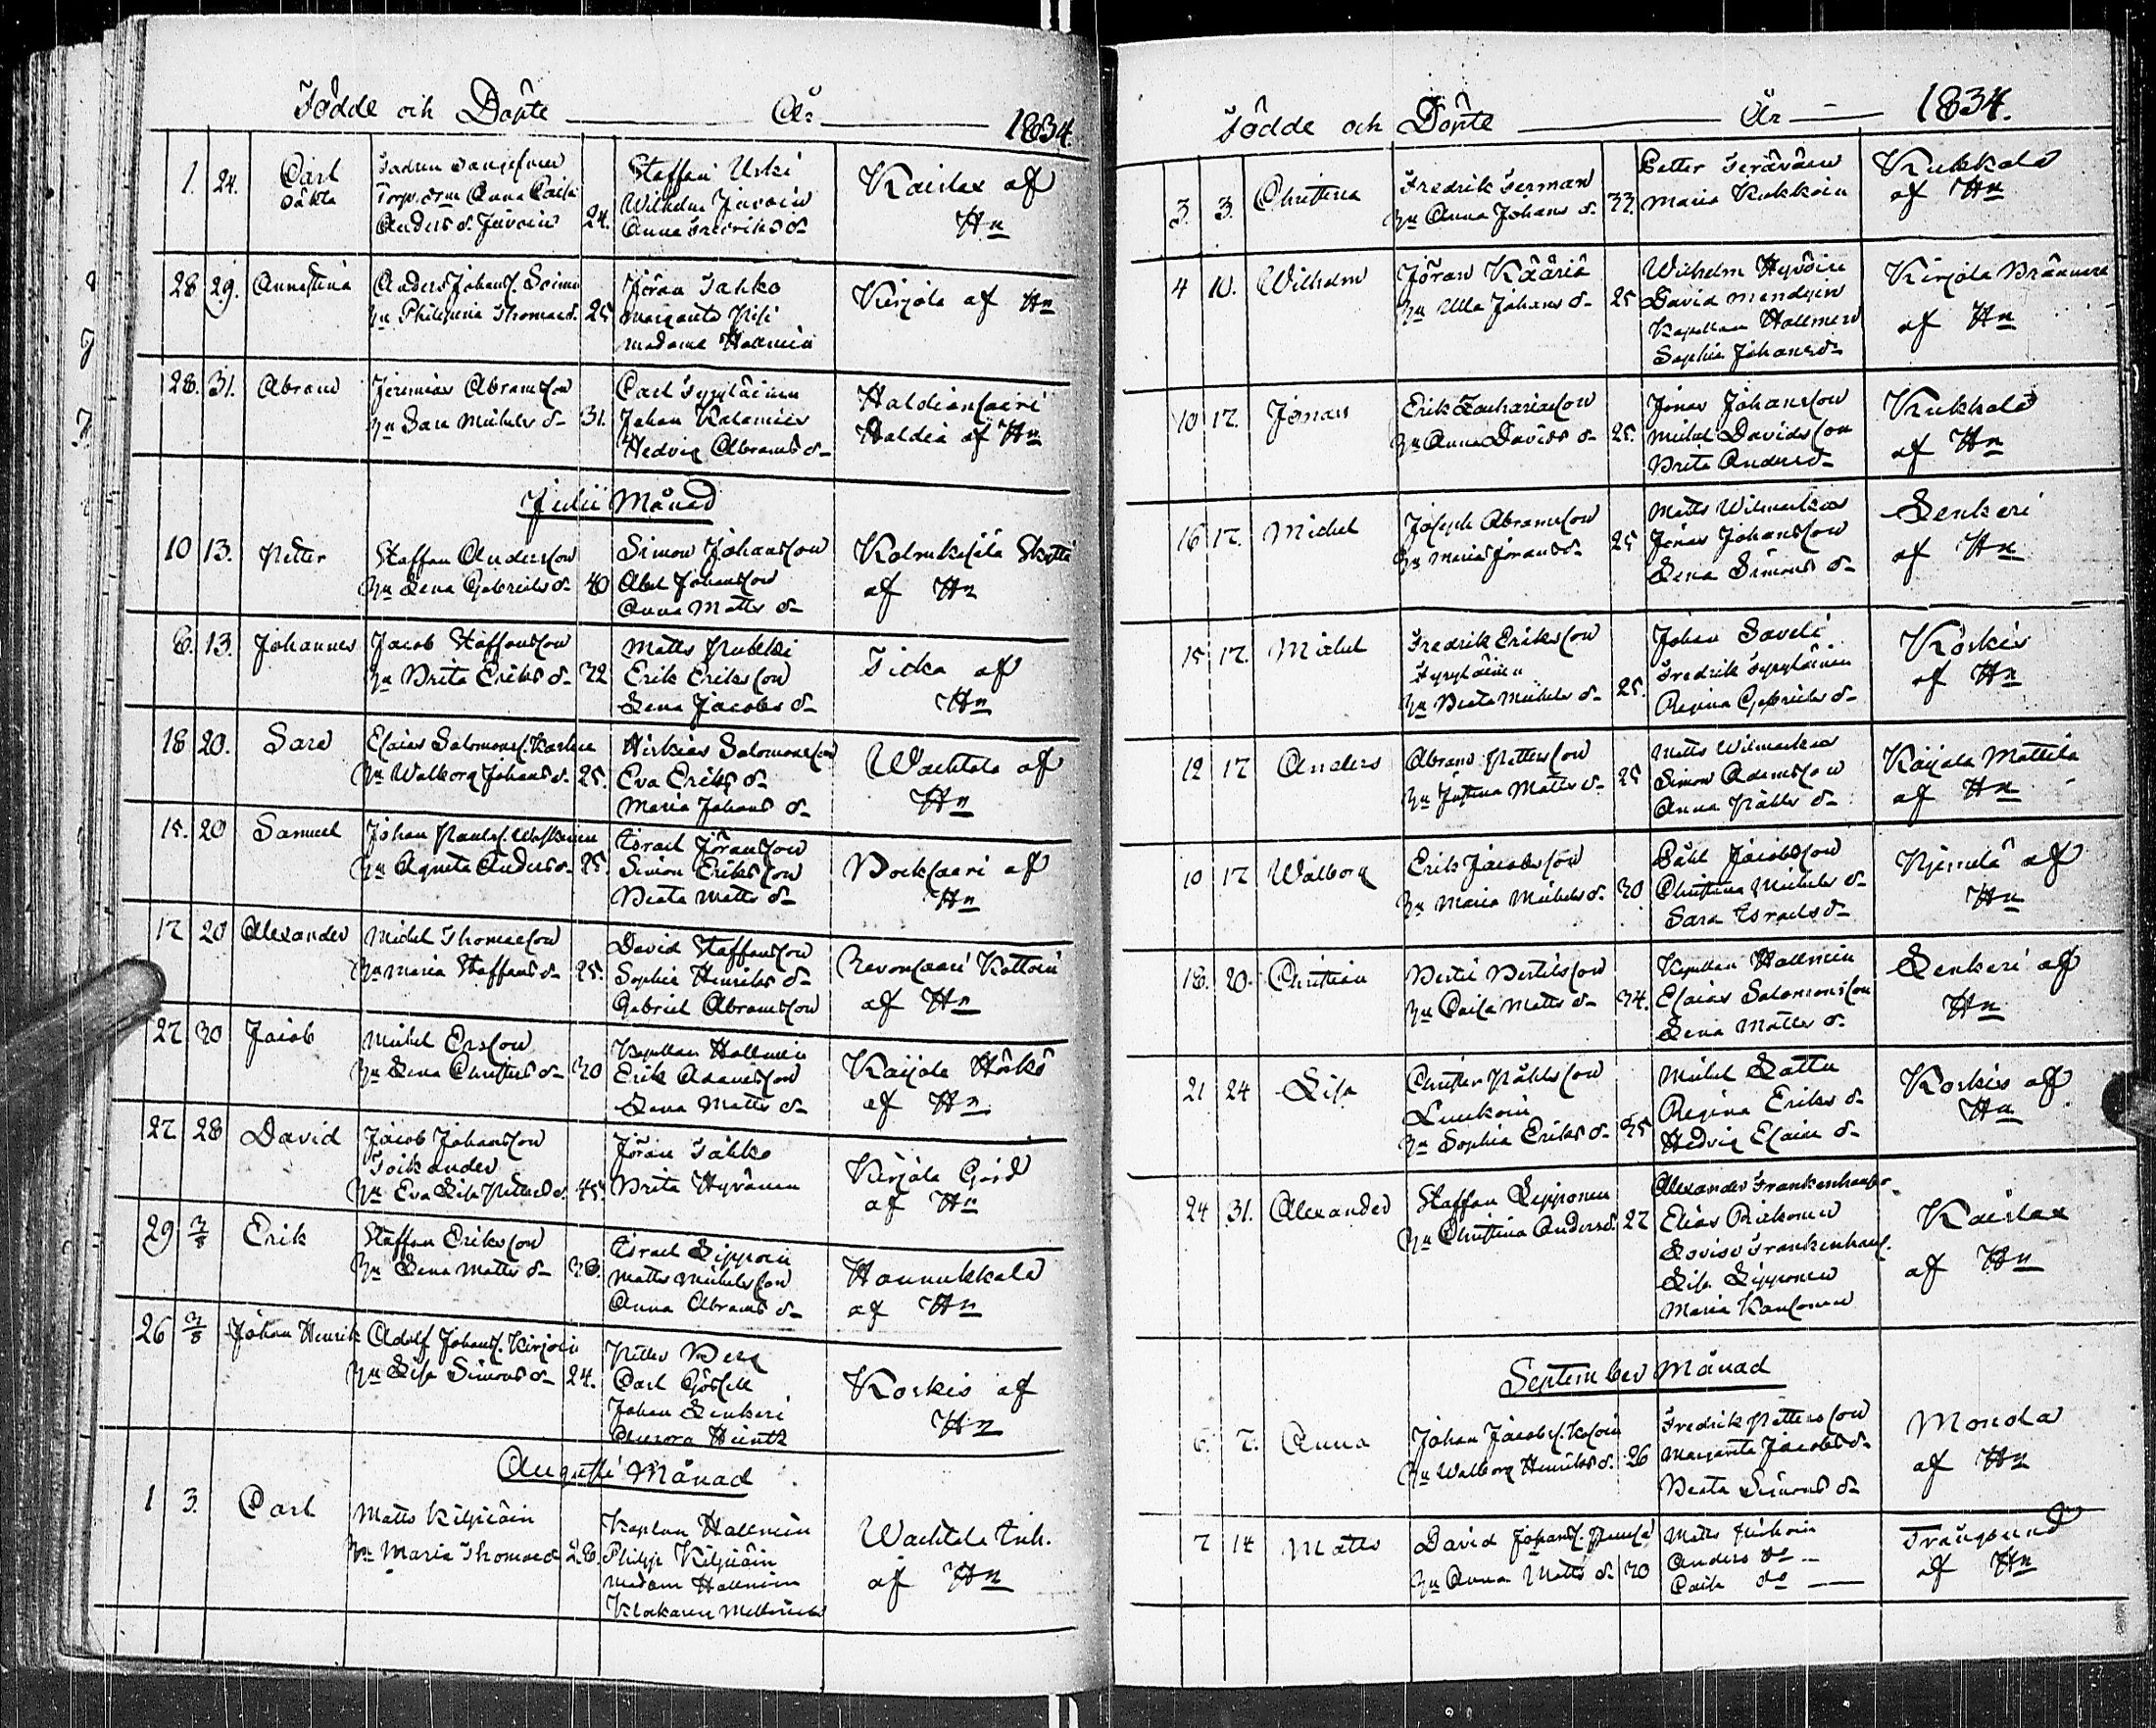 Födde och Döpte År 1834.
1. 24. Carl
oäkta
Anna Caisa
Anders d. 24.
Staffan Uski
Wilhelm
Anna Fredriks d.
Kaislax af
Hn
28 29. Annastina
Anders Johans.
Hu Philippina Thomasd. 25
Jöran Tahko
Margareta
Madame Hallmén
Kirjola af Hn
28. 31. Abram
Jeremias Abramsson
Hu Sara Michels d. 31.
Carl
Johan
Hedvig Abrams d.
Haldiansaari
Haldia af Hn
Julii Månad
10 13. Petter
Staffan Andersson
Hu Lena Gabriels d. 40
Simon Johansson
Abel Johansson
Anna Matts d.
Kolmikesälä
af Hn
6. 13. Johannes
Jacob Staffansson
Hu Brita Eriks d. 32
Matts Pukki
Erik Eriksson
Lena Jacobs d.
Ticka af
Hn
18 20. Sara
Esaias Salomons.
Hu Walborg Johans d. 25.
Hiskias Salomonsson
Eva Eriks d.
Maria Johans d.
Wachtola af
Hn
15. 20 Samuel
Johan Pauls.
Hu Agneta Anders d. 25.
Israel Jöransson
Simon Eriksson
Beata Matts d.
Bocksaari af
Hn
17 20 Alexander
Michel Thomasson
Hu Maria Staffans d. 25.
David Staffansson
Sophia Henriks d.
Gabriel Abramsson
Revonsaari Kottoin
af Hn
27 30 Jacob
Michel Ersson
Hu Lena Christers d. 30
Kapellan Hallmén
Erik Adamsson
Lena Matts d.
Kaijola Hörkö
af Hn
27 28 David
Jacob Johansson
Toikander
Hu Eva Lisa Petters d. 45
Jöran Tahko
Brita Hyvönen
Kirjola Gård
af Hn
29 3/8 Erik
Staffan Eriksson
Hu Lena Matts d. 38.
Israel Lipponen
Matts Michelsson
Anna Abrams d.
Hannukkala
af Hn
26 3/8 Johan Henrik
Adolf Johans.
Hu Lisa Simons d. 24.
Petter Berg
Carl
Johan Lenkeri
Aurora
Korkis af
Hn
Augusti Månad
1 3. Carl
Matts Kilpiäin
Hu Maria Thomas d 28.
Kapelan Hallmén
Philip Kilpiäin
Madam Hallmén
Klockaren
Wachtola Inh.
af Hn
Födde och Döpte År 1834.
3. 3. Christina
Fredrik German
Hu Anna Johans d. 33.
Petter Terävän
Maria Kukkoin
Kukkola
af Hn
4 10. Wilhelm
Jöran Kääriä
Hu Ulla Johans d. 25
Wilhelm Hyvöin
David
Kapellan Hallmén
Sophia Johans d.
Kirjola
af Hn
10 17. Jonas
Erik Zachariasson
Hu Anna Davids d. 25.
Jonas Johansson
Michel Davidsson
Brita Anders d.
Kukkola
af Hn
16 17. Michel
Joseph Abramsson
Hu Maria Jörans d. 25
Matts
Jonas Johansson
Lena Simons d.
Lenkeri
af Hn
15 17. Michel
Fredrik Eriksson
Hu Beata Michels d. 25.
Johan Saveli
Fredrik
Regina Gabriels d.
Korkis
af Hn
12 17 Anders
Abram Pettersson
Hu Justina Matts d. 25
Matts
Simon Adamsson
Anna Påhls d.
Kaijola Mattila
af Hn
10 17 Walborg
Erik Jacobsson
Hu Maria Michels d. 30.
Påhl Jacobsson
Christina Michels d.
Sara Israels d.
Niemelä af
Hn
18. 20. Christian
Bertil Bertilsson
Hu Caisa Matts d. 34.
Kapellan Hallmén
Esaias Salomonsson
Lena Matts d.
Lenkeri af
Hn
21 24 Lisa
Christer Påhlsson
Hu Sophia Eriks d. 35
Michel Lattu
Regina Eriks d.
Hedvig Esaiae d.
Korkis af
Hn
24 31. Alexander
Staffan Lipponen
Hu Christina Anders d. 27
Alexander Frankenhaeuser
Elias
Lovisa Frankenhaeus.
Lisa Lipponen
Maria Kansonen
Kaislax
af Hn
September Månad
6. 7. Anna
Johan Jacobs.
Hu Walborg Henriks d. 26
Fredrik Pettersson
Margareta Jacobs d.
Beata Simons d.
Monola
af Hn
7 14 Matts
David Johans.
Hu Anna Matts d 30
Matts
Anders do
Caisa do
Trångsund
af Hn